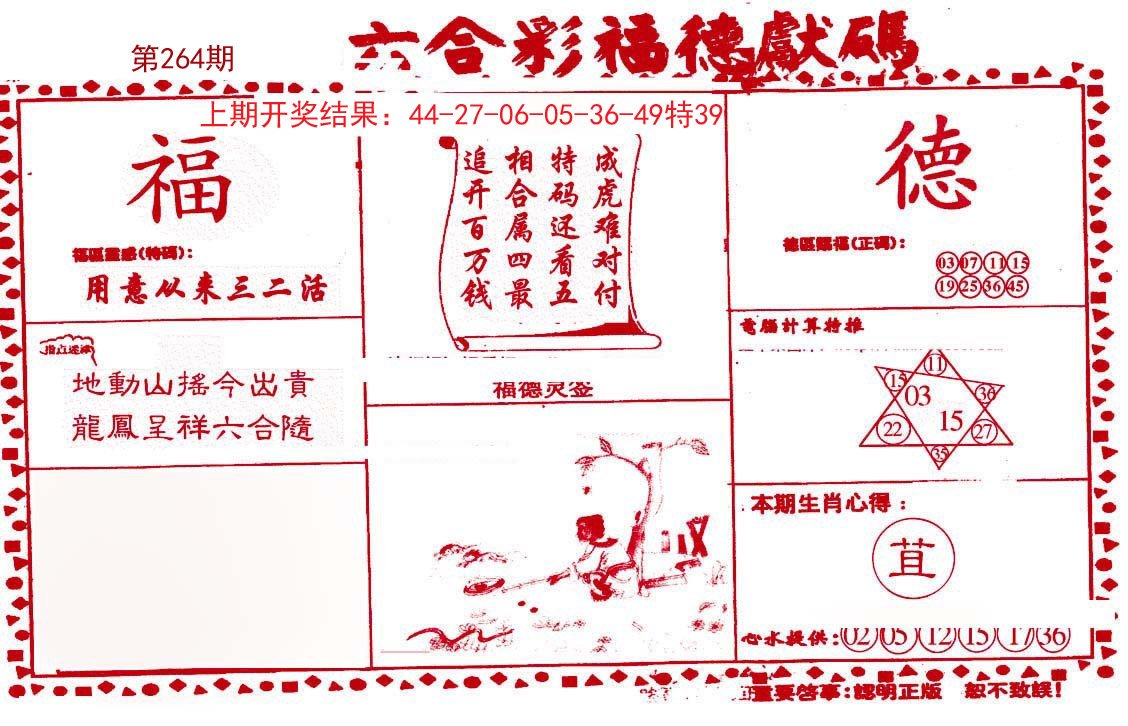 六合彩福德獻碼
第264期
上期开奖结果：44-27-06-05-36-49特39
福
福區靈感(特碼)：
用意从来三二活
指点迷津
地動山搖今出貴
龍鳳呈祥六合隨
成虎难对付
特码还看五
相合属四最
追开百万钱
福德灵签
德
德區賜福(正碼)：
03 07 11 15
19 25 36 45
電腦計算特推
11
15 03 36
22 15 27
35
本期生肖心得：
苴
心水提供：02 05 12 15 17 36
重要啓事：認明正版 恕不致誤！